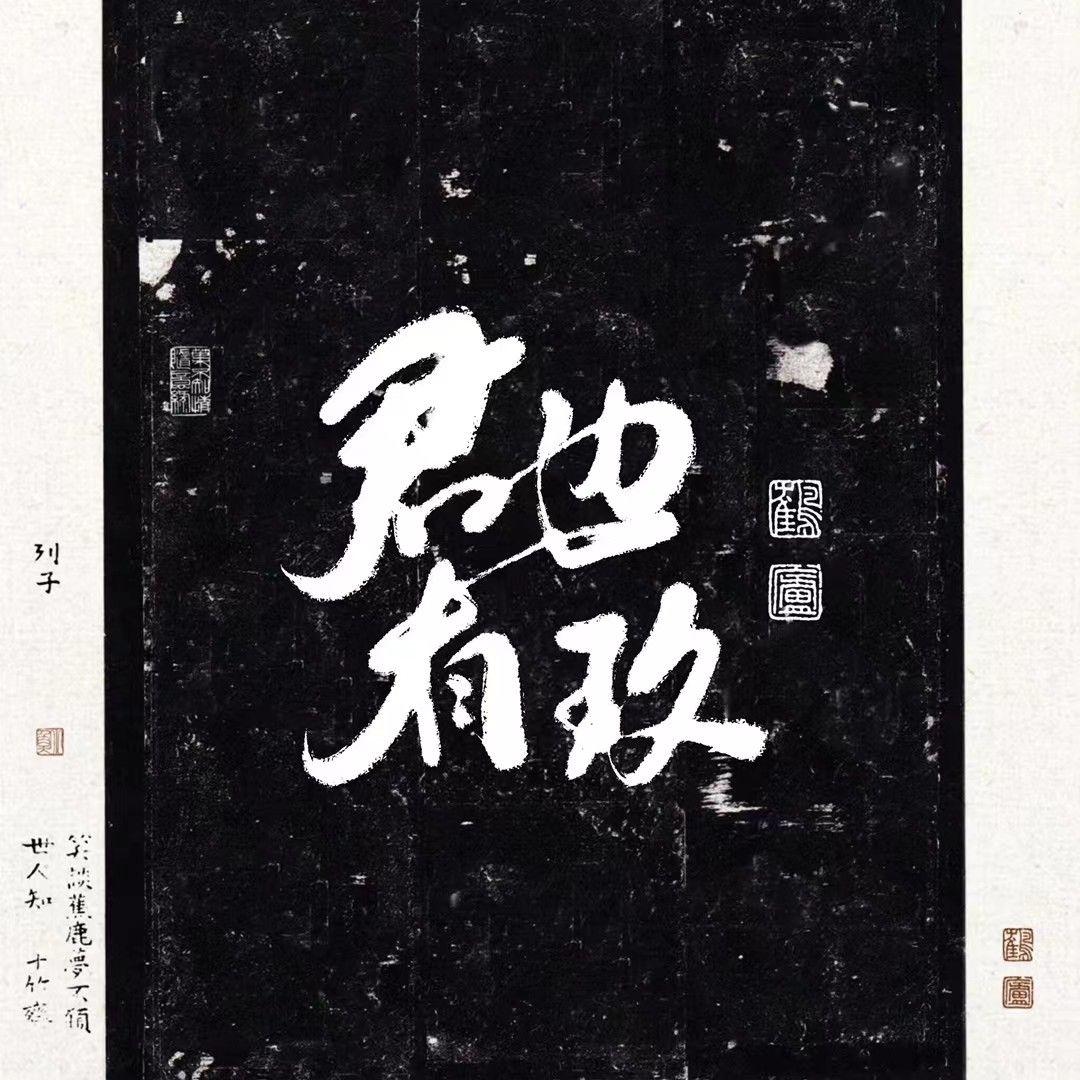 君也
有玫
鶴
廬
列子
笑談蕉鹿夢不須
世人知 十竹齋
鶴
廬